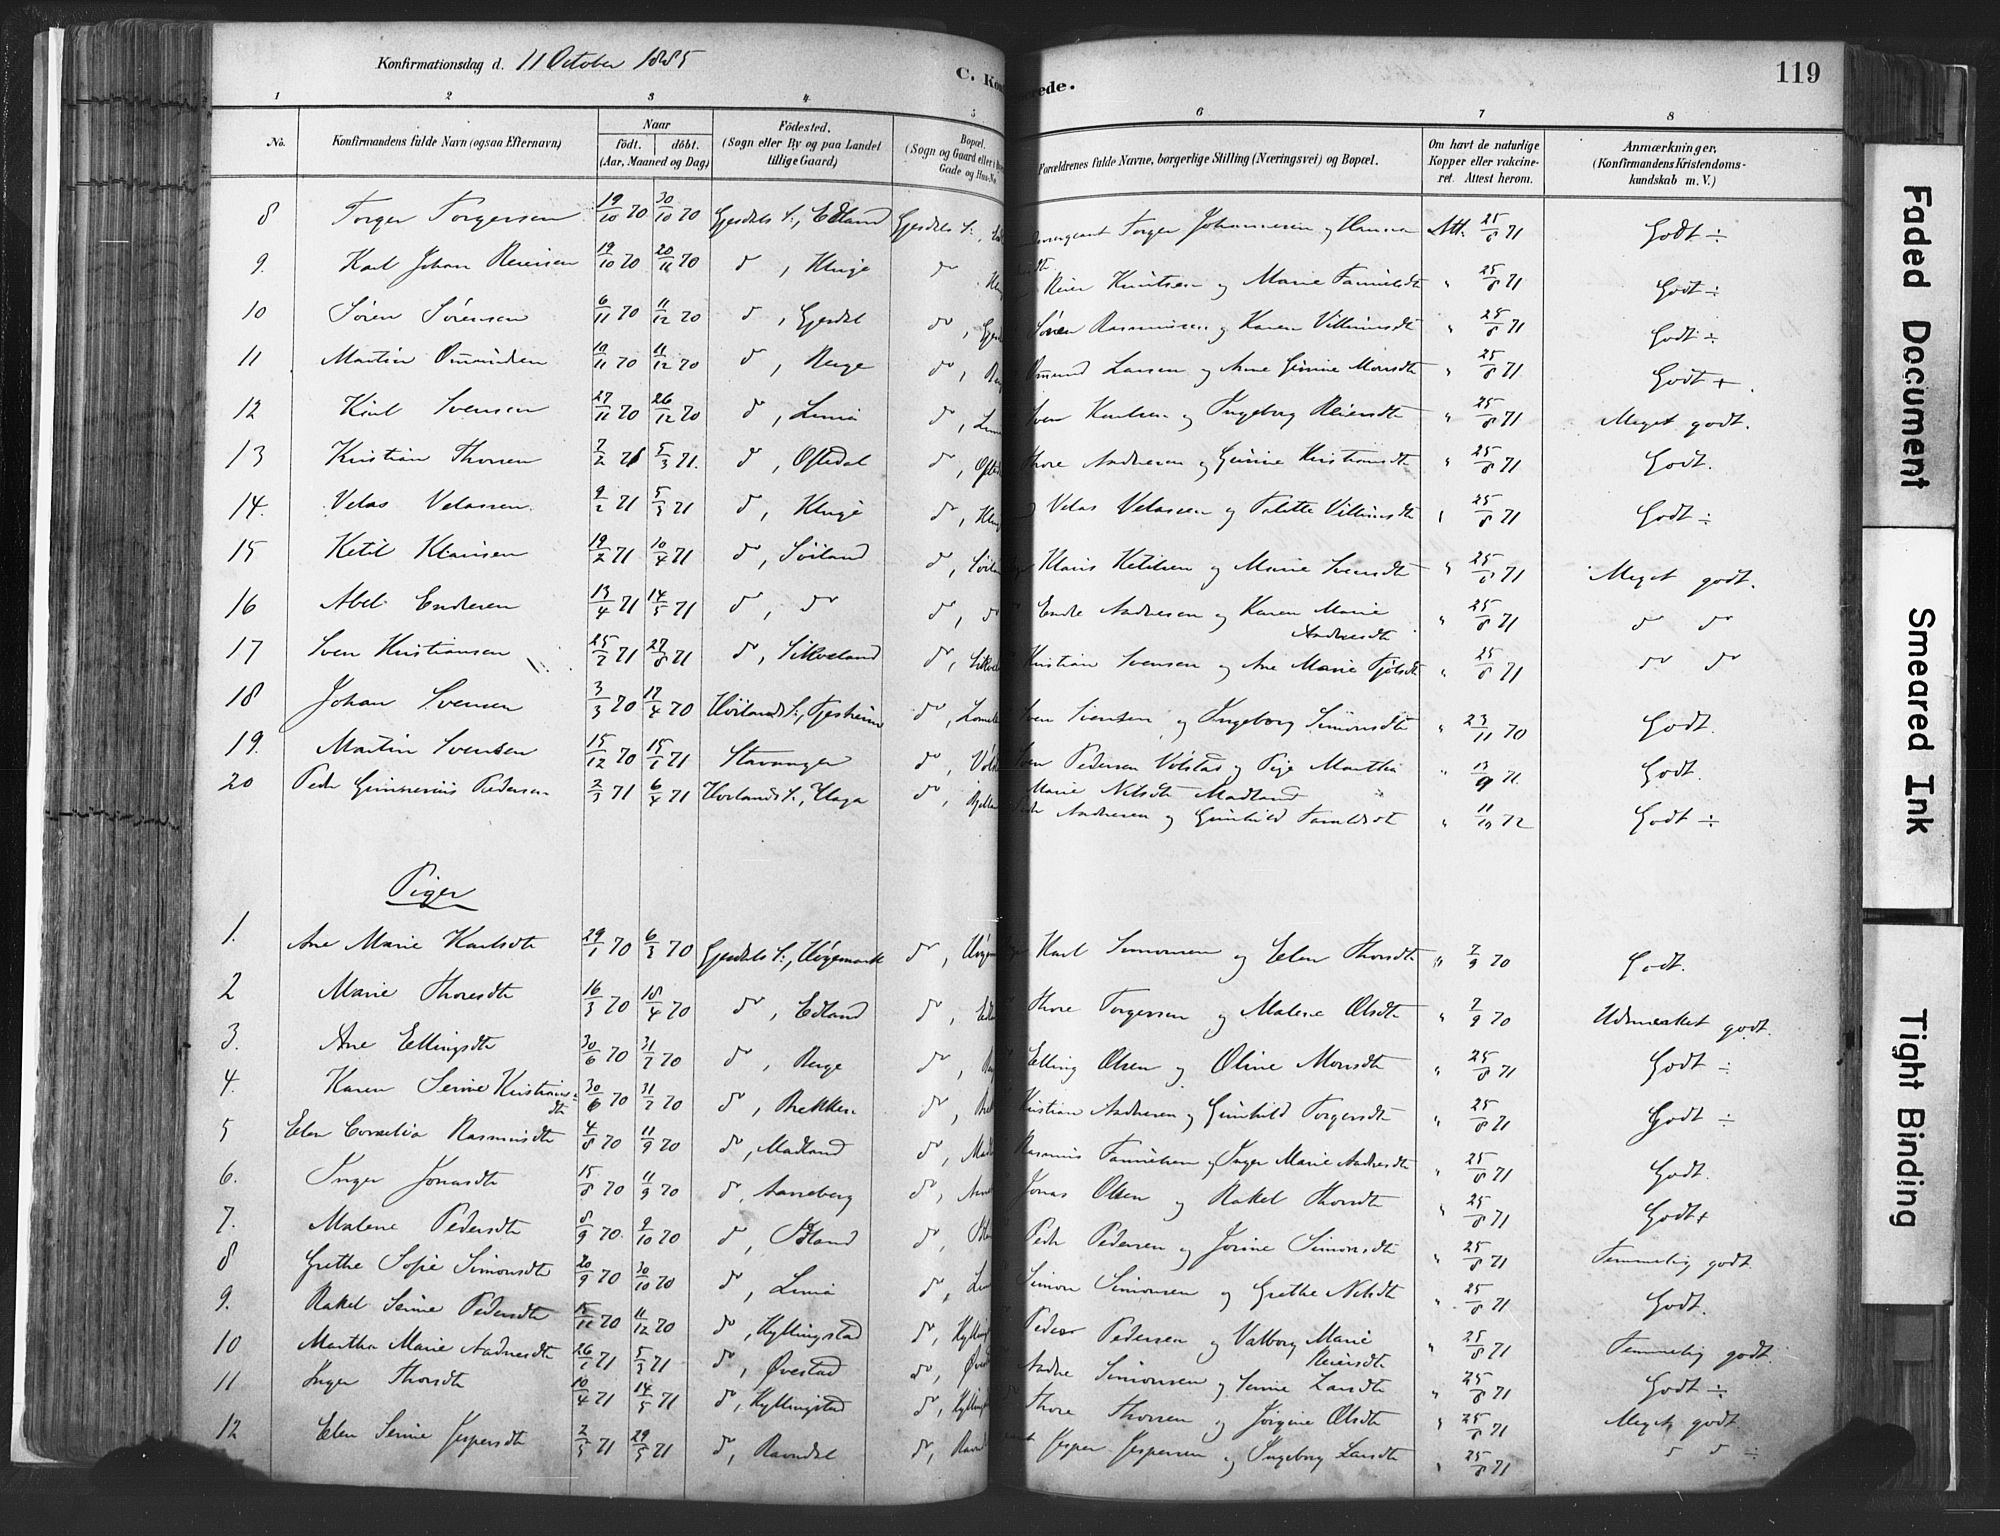 Konfirmationsdag d. 11 October 1885
C. Kon
erede.
119
1 2 3 4 5 6 7 8
No.
Konfirmandens fulde Navn (ogsaa Efternavn)
Naar
födt. döbt.
(Aar, Maaned og Dag)
Födested.
(Sogn eller By og paa Landet
tillige Gaard)
Bopæl.
(Sogn og Gaard eller
Gade og Hus-No
Forældrenes fulde Navne, borgerlige Stilling (Næringsvei) og Bopæl.
Om havt de naturlige
Kopper eller vakcine-
ret. Attest herom.
Anmærkninger.
(Konfirmandens Kristendoms-
kundskab m. V.)
8 Torger Torgersen 19/10 70 30/10 70 Gjesdals S:, Edland Gjesdals S:, Torger Johannesen og Att. 25/8 71 Godt ÷
9. Karl Johan Reiersen 19/10 70 20/11 70 do, Kluge do Reier Knutsen og Marie " 25/8 71 Godt ÷
10 Sören Sörensen 6/11 70 11/12 70 do, Gjesdal do, Sören Rasmussen og Karen Villumsdt " 25/8 71 Godt ÷
11 Martin Omundsen 10/11 70 11/12 70 do, Berge do, Omund Larsen og Ane Gurine Monsdt " 25/8 71 Godt +
12 Karl Svensen 27/11 70 26/12 70 do, Limi do, Sven Karlsen og Ingeborg Reiersdt " 25/8 71 Meget godt.
13 Kristian Thorsen 2/2 71 5/3 71. do, Oftedal do, Thore Andersen og Gurine Kristiansdt " 25/8 71 Godt.
14. Velas Velassen 9/2 71 5/3 71 do, Kluge do, Velas Velassen og Tolette Villumsdt " 25/8 71 Godt ÷
15 Ketil Klausen 19/2 71 10/4 71 do, Söiland do, Klaus Ketilsen og Marie Svensdt " 25/8 71 Meget godt.
16 Abel Endresen 13/4 71 14/5 71 do, do do, do Endre Andresen og Karen Marie
Andersdt " 25/8 71 do do
17 Sven Kristiansen 25/7 71 27/8 71 do, Sikveland do, Kristian Svensen og Ane Marie Fjölsdt " 25/8 71 do do
18 Johan Svensen 3/3 70 17/4 70 Höilands S:, do, Sven Svensen og Ingeborg Simonsdt " 23/11 70 Godt.
19. Martin Svensen 15/12 70 15/1 71 Stavanger do, Sven Pedersen Völstad og Pige Martha
Marie Nilsdt Madland " 13/9 71 Godt.
20 Peder Gunnerius Pedersen 2/3 71 6/4 71 Höilands S:, Haga do, Peder Andersen og Gunhild " 11/10 72 Godt ÷
Piger
1. Ane Marie Karlsdt 29/1 70 6/3 70 Gjesdals S:, Högemark do, Karl Simonsen og Elen Thorsdt " 7/9 70 Godt.
2 Marie Thoresdt 16/3 70 18/4 70 do, Edland do, Thore Torgersen og Malene Olsdt " 7/9 70 Udmerket godt.
3. Ane Ellingsdt 30/6 70 31/7 70 do, Berge do, Elling Olsen og Oline Monsdt " 25/8 71 Godt ÷
4. Karen Serine Kristians-
dt 30/6 70 31/7 70 do, Brekken do, Kristian Andersen og Gunhild Torgersdt " 25/8 71 Godt ÷
5 Elen Cornelia Rasmusdt 4/8 70 11/9 70 do, Madland do, Rasmus og Inger Marie Andersdt " 25/8 71 Godt.
6. Inger Jonasdt 15/8 70 11/9 70 do, do, Jonas Olsen og Rakel Thorsdt " 25/8 71 Godt +
7. Malene Pedersdt 8/9 70. 9/10 70 do, do, Peder Pedersen og Jorine Simonsdt " 25/8 71 Temmelig godt.
8 Grethe Sofie Simonsdt 20/9 70 30/10 70 do, Limi do, Simon Simonsen og Grethe Nilsdt " 25/8 71 Godt.
9. Rakel Serine Pedersdt 15/11 70 11/12 70 do, Kyllingstad do, Peder Pedersen og Valborg Marie
Reiersdt " 25/8 71 Temmelig godt.
10 Martha Marie Aadnesdt 26/1 71 5/3 71 do, Övestad do, Aadne Simonsen og Serine Larsdt " 25/8 71 Godt ÷
11 Inger Thorsdt 10/4 71 14/5 71 do, Kyllingstad do, Thore Thorsen og Jörgine Olsdt " 25/8 71 Meget godt.
12 Elen Serine Jespersdt 2/5 71 29/5 71 do, Ravndal do, Jesper Jespersen og Ingeborg Larsdt " 25/8 71 do do ÷
Faded Document
Smeared Ink
Tight Binding